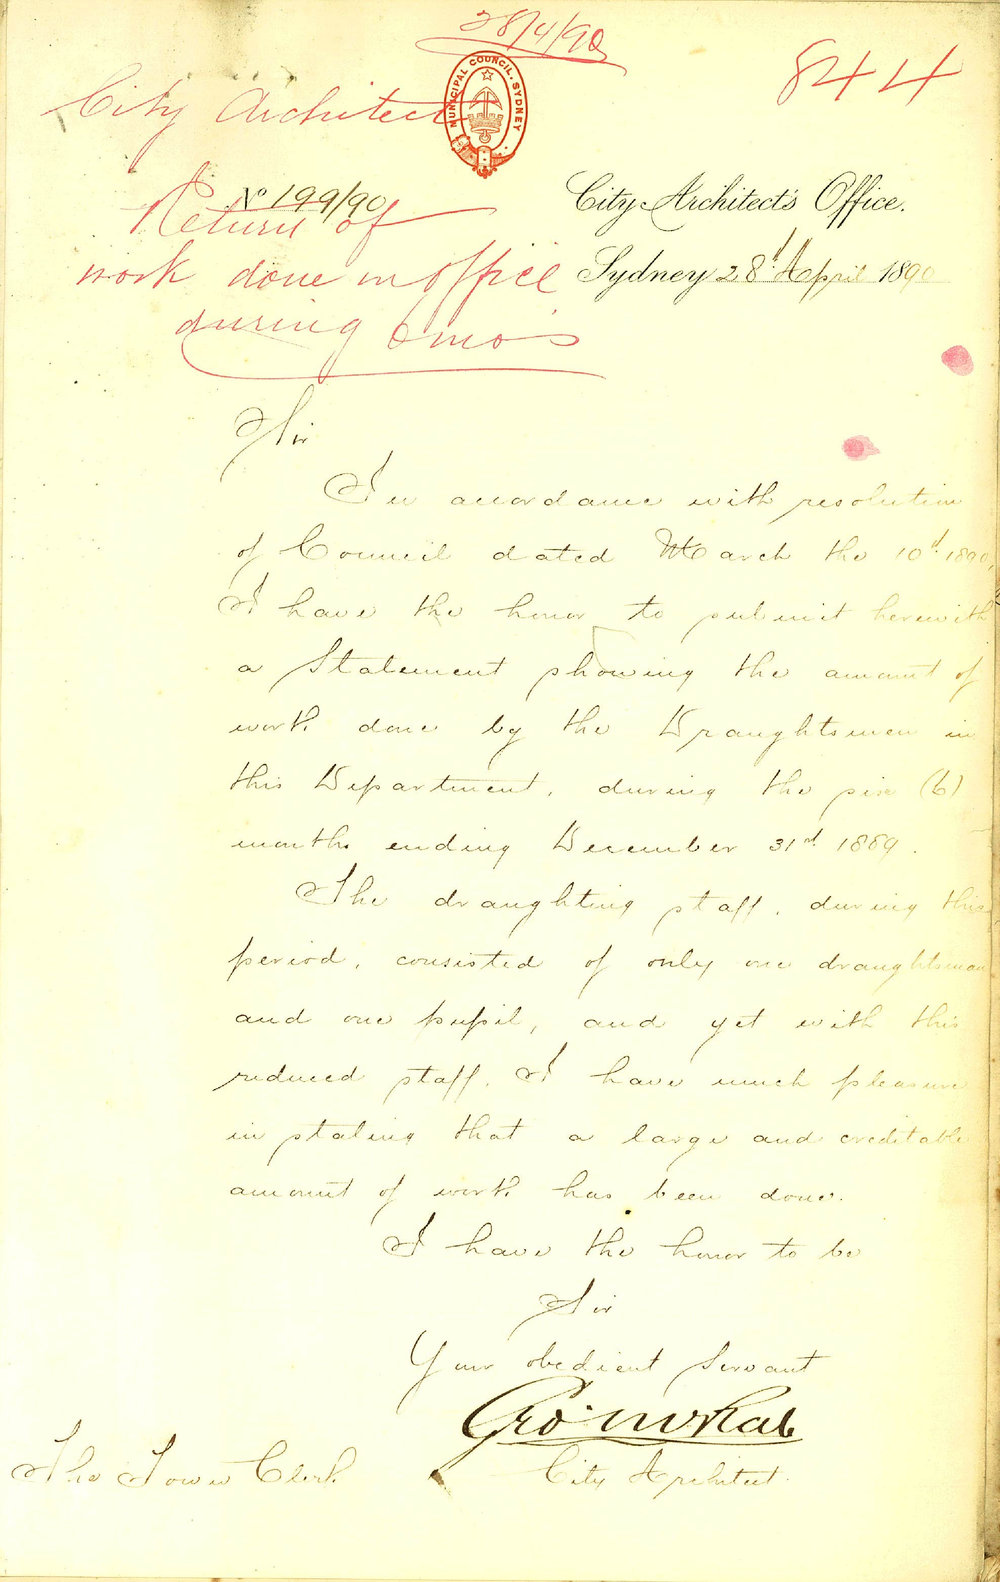 28/4/90
844
MUNICIPAL COUNCIL. SYDNEY
City Architect
No 199/90
Return of
work done in office
during 6 mos
City Architect's Office.
Sydney 28th April 1890
Sir
In accordance with resolution
of Council dated March the 10th 1890,
I have the honor to submit herewith
a Statement showing the amount of
work done by the Draughtsmen in
this Department, during the six (6)
months ending December 31st 1889.
The draughting staff, during this
period, consisted of only one draughtsman
and one pupil, and yet with this
reduced staff, I have much pleasure
in stating that a large and creditable
amount of work has been done.
I have the honor to be
Sir
Your obedient Servant
Geo. McRae
City Architect.
The Town Clerk